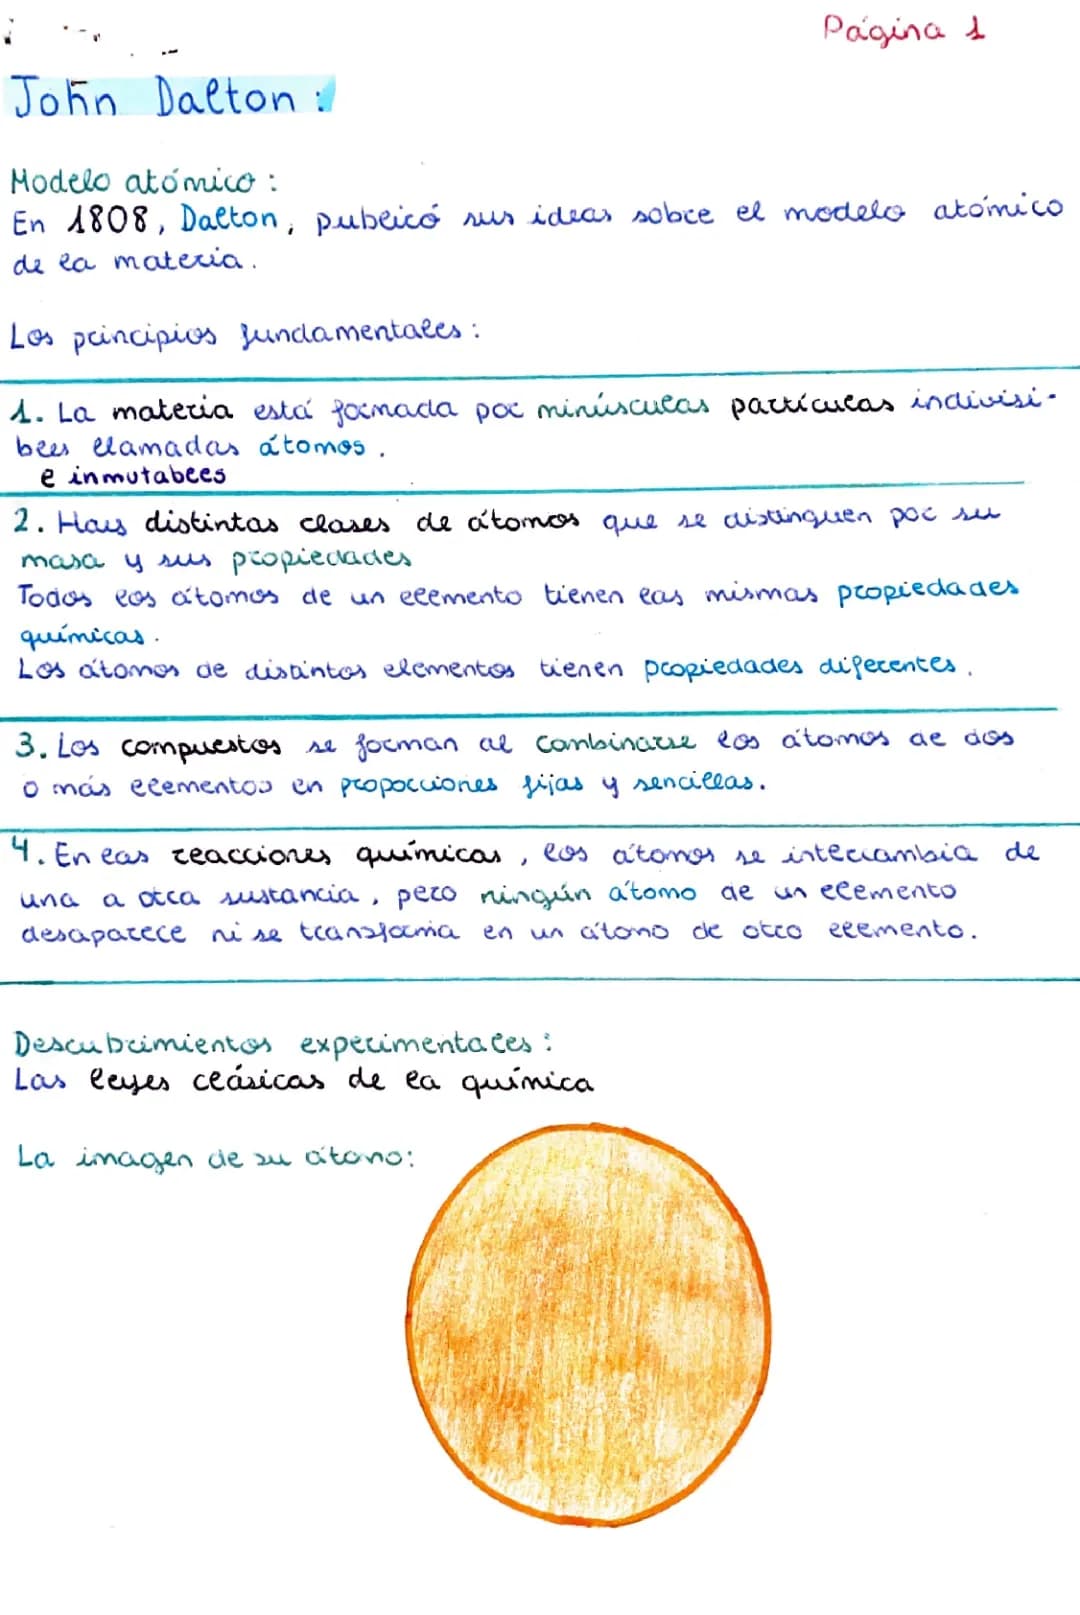 Página 1
John Dalton:
Modelo atómico:
En 1808, Dalton, publicó sus ideas sobre el modelo atómico
de la materia.
Los principios fundamentales:
1. La materia está formada por minúsculas partículas indivisi-
bles llamadas átomos.
e inmutables
2. Hay distintas clases de átomos que se distinguen por su
masa y sus propiedades
Todos los átomos de un elemento tienen las mismas propiedades
químicas.
Los átomos de distintos elementos tienen propiedades diferentes.
3. Los compuestos se forman al combinarse los átomos de dos
o más elementos en proporciones fijas y sencillas.
4. En las reacciones químicas, los átomos se intercambia de
una a otra sustancia, pero ningún átomo de un elemento
desaparece ni se transforma en un átomo de otro elemento.
Descubrimientos experimentales:
Las leyes clásicas de la química
La imagen de su átomo: